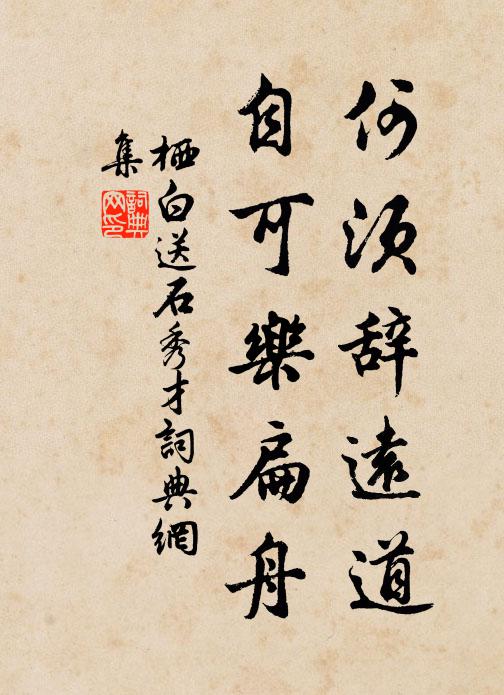 何須辞遠道
自可樂扁舟
栖白送石秀才詞典網
集
詞典
网印